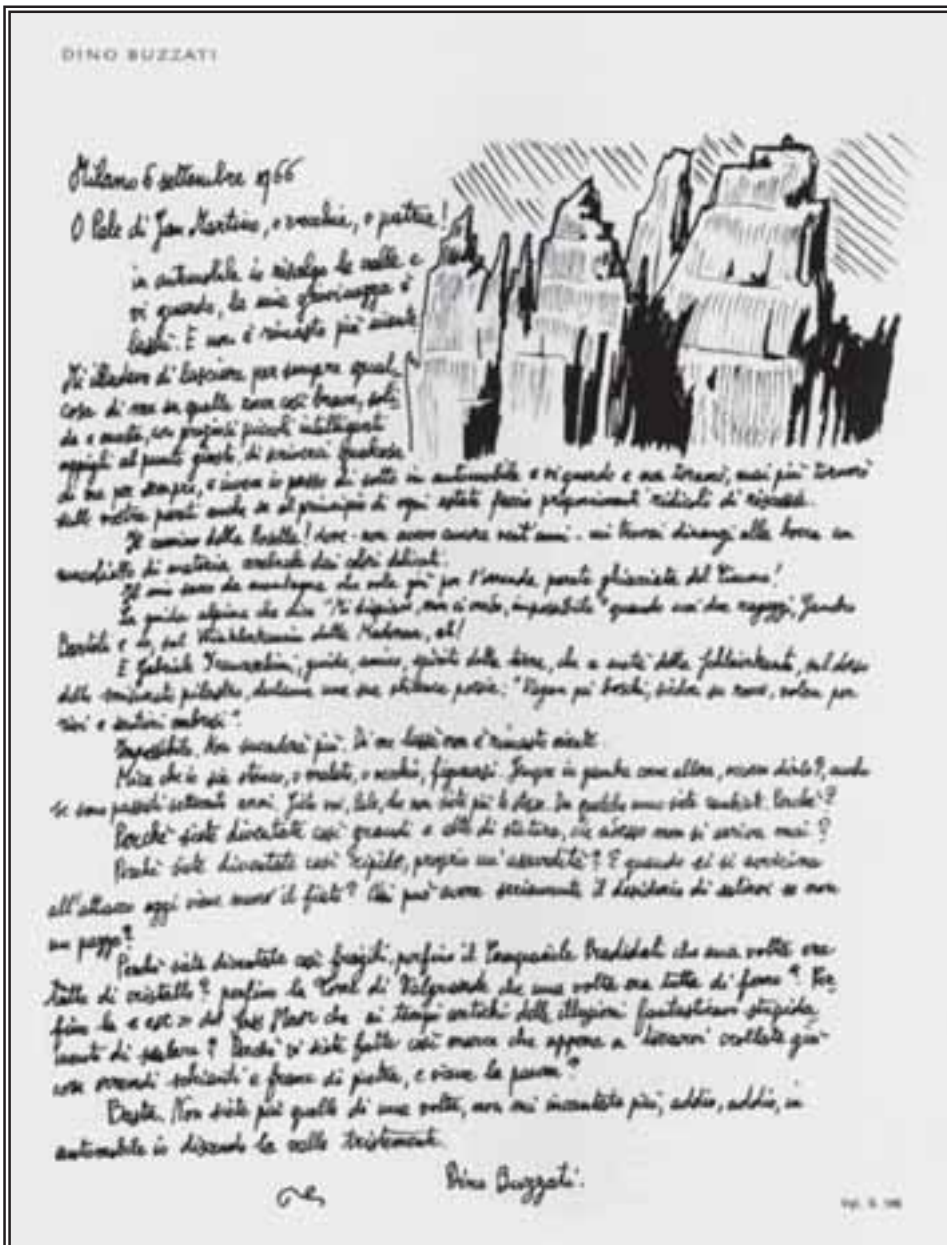 DINO BUZZATI
Milano 6 settembre 1966
O Pale di San Martino, o vecchie, o patria!
in automobile io risalgo la valle e
vi guardo, la mia giovinezza è
lassù. E non è rimasto più niente
Mi illudevo di lasciare per sempre qual
cosa di me su quelle rocce così brave, soli-
de e oneste, coi preziosi piccoli intelligenti
appigli al punto giusto, di scriverci qualcosa
di me per sempre, e invece io passo di sotto in automobile e vi guardo e non tornerò, mai più tornerò
sulle vostre pareti anche se al principio di ogni estate faccio proponimenti ridicoli di riscossa.
Il camino della ! dove - non avevo ancora vent'anni - mi trovai dinanzi alla bocca un
mucchietto di materia dai colori delicati.
Il mio sacco da montagna che vola giù per l'orrenda parete ghiacciata del !
La guida alpina che dice "Mi dispiace, non ci credo, impossibile" quando noi due ragazzi, Sandro
Bartoli e io, sul Winklerkamin della Madonna, ah!
E Gabriele Franceschini, guida, amico, spirito della terra, che a metà della Schleierkante, sul dorso
dello sterminato pilastro, declama una sua poesia: "Vagar pei boschi, sider su rocce, volar per
rivi e sentieri ombrosi".
Impossibile. Non succederà più. Di me lassù non è rimasto niente.
Mica che io sia stanco, o malato, o vecchio, figurarsi. Sempre in gamba come allora, occorre dirlo?, anche
se sono passati settanta anni. Siete voi, Pale, che non siete più le stesse. In qualche modo siete cambiate. Perché?
Perché siete diventate così grandi e alte di statura, che adesso non si arriva mai?
Perché siete diventate così ripide, proprio un'assurdità? E quando ci si avvicina
all'attacco oggi viene meno il fiato? Chi può avere seriamente il desiderio di salirvi se non
un pazzo?
Perché siete diventate così fragili, perfino il Campanile Pradidali che una volta era
tutto di cristallo? perfino la Torre di Valgrande che una volta era tutta di ferro? Per
fino la « est » del Sass Maor che ai tempi antichi delle illusioni fantasticavi stupida
mente di scalare? Perché vi siete fatte così marce che appena a toccarvi crollate giù
con orrendi schianti e frane di pietre, e viene la paura?
Basta. Non siete più quelle di una volta, non mi incantate più, addio, addio, in
automobile io discendo la valle tristemente.
Dino Buzzati.